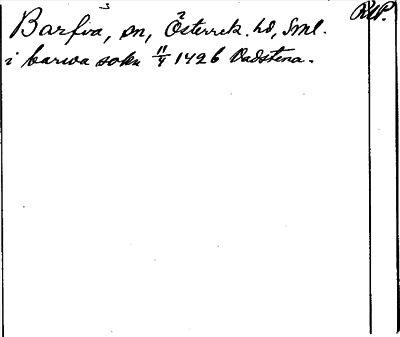 Barfva, sn, Österrek. hd, Sml. RAP.
i barwa sokn 11/4 1426 Vadstena.